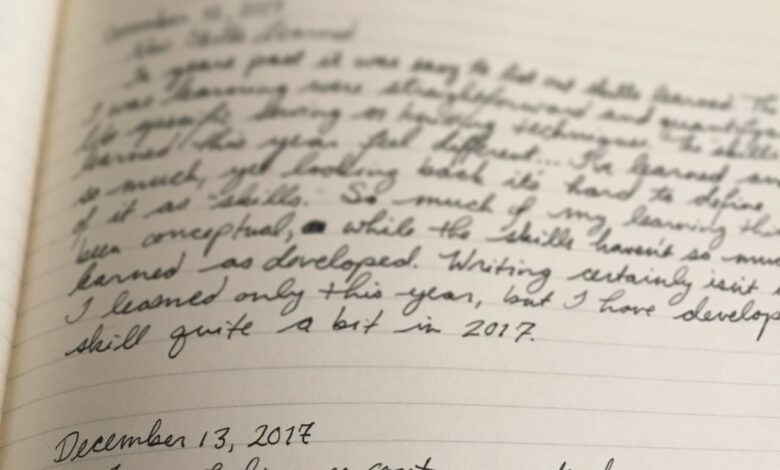 December 12, 2017
New Skills Learned
In years past it was easy to list out skills learned. The
I was learning were straightforward and quantifia
like specific sewing or knitting techniques. The skills
learned this year feel different... I've learned
so much, yet looking back it's hard to define
of it as "skills." So much of my learning this
been conceptual, while the skills haven't so muc
learned as developed. Writing certainly isn't
I learned only this year, but I have develop
skill quite a bit in 2017.
December 13, 2017